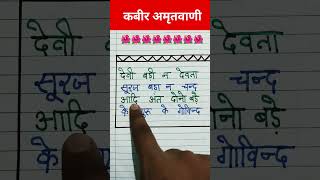 कबीर अमृतवाणी
देवी बडी न देवता
सूरज बड़ा न चन्द
आदि अंत दोनो बड़े
के गुरु के गोविन्द